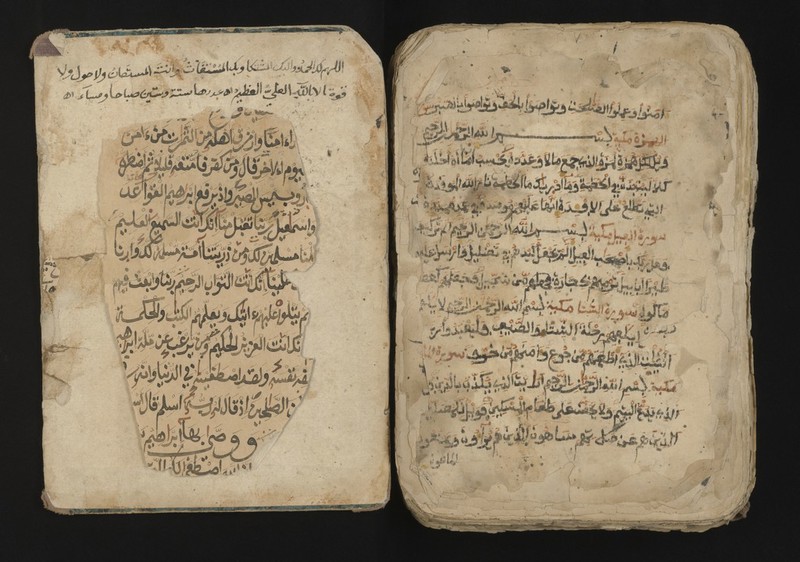 امنوا وعملوا الصلحت وتواصوا بالحق وتواصوا بالصبر
الهمزة مكية بسم الله الرحمن الرحيم
ويل لكل همزة لمزة الذي جمع مالا وعدده يحسب ان ماله اخلده
كلا لينبذن في الحطمة وما ادريك ما الحطمة نار الله الموقدة
التي تطلع على الافدة انها عليهم موصدة في عمد ممددة
سورة الفيل مكية بسم الله الرحمن الرحيم الم تر كيف
فعل ربك باصحب الفيل الم يجعل كيدهم في تضليل وارسل عليهم
طيرا ابابيل ترميهم بحجارة من سجيل فجعلهم كعصف
ماكول سورة الشتا مكية بسم الله الرحمن الرحيم لايلاف
ايلفهم رحلة الشتاء والصيف فليعبدوا رب
البيت الذي اطعمهم من جوع وامنهم من خوف سورة
مكية بسم الله الرحمن الرحيم ارايت الذي يكذب بالدين فذلك
الذي يدع اليتيم ولا يحض على طعام المسكين فويل للمصلين
الذين هم عن صلاتهم ساهون الذين هم يراءون ويمنعون
الماعون
اللهم لك الحمد واليك المشتكا وبك المستغاث وانت المستعان ولا حول ولا
قوة الا بالله العلي العظيم عددها ستة وستين صباحا ومساء
ءامنا وارزق اهله من الثمرت من ءامن
يوم الاخر قال ومن كفر فامتعه قليلا ثم اضطره
وبيس المصير واذ يرفع ابرهيم القواعد
واسمعيل ربنا تقبل منا انك انت السميع العليم
لنا مسلمين لك ومن ذريتنا امة مسلمة لك وارنا
علينا انك انت التواب الرحيم ربنا وابعث فيهم
يتلوا عليهم ءايتك ويعلمهم الكتب والحكمة
انك انت العزيز الحكيم ومن يرغب عن ملة ابراهيم
سفه نفسه ولقد اصطفينه في الدنيا وانه
من الصلحين اذ قال له ربه اسلم قال
ووصى بها ابراهيم
اصطفى لكم الدين